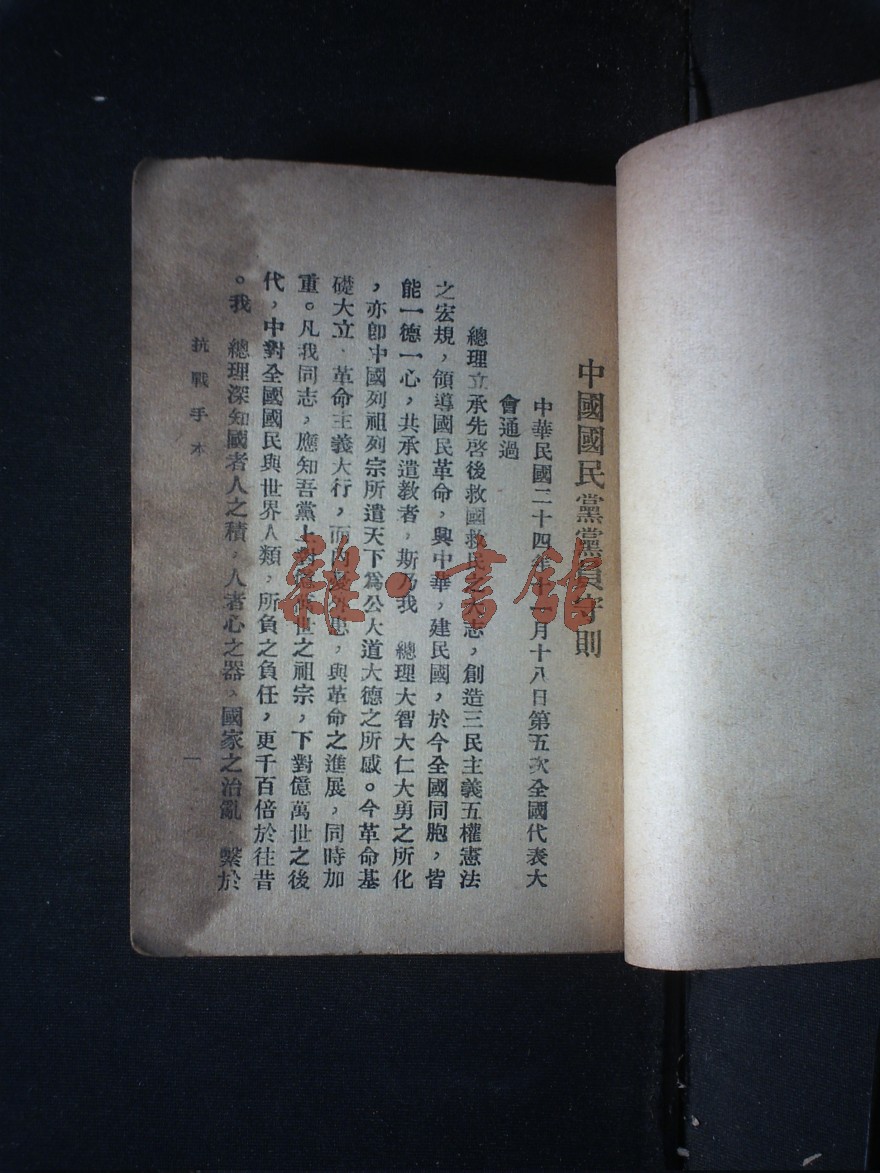 中國國民黨黨員守則
中華民國二十四年十一月十八日第五次全國代表大
會通過
總理立承先啓後救國救民之大志，創造三民主義五權憲法
之宏規，領導國民革命，興中華，建民國，於今全國同胞，皆
能一德一心，共承遺教者，斯乃我　總理大智大仁大勇之所化
，亦卽中國列祖列宗所遺天下爲公大道大德之所感。今革命基
礎大立，革命主義大行，而內憂外患，與革命之進展，同時加
重。凡我同志，應知吾黨上對億萬世之祖宗，下對億萬世之後
代，中對全國國民與世界人類，所負之負任，更千百倍於往昔
。我　總理深知國者人之積，人者心之器，國家之治亂　繫於
抗戰手本
一
雜·書館